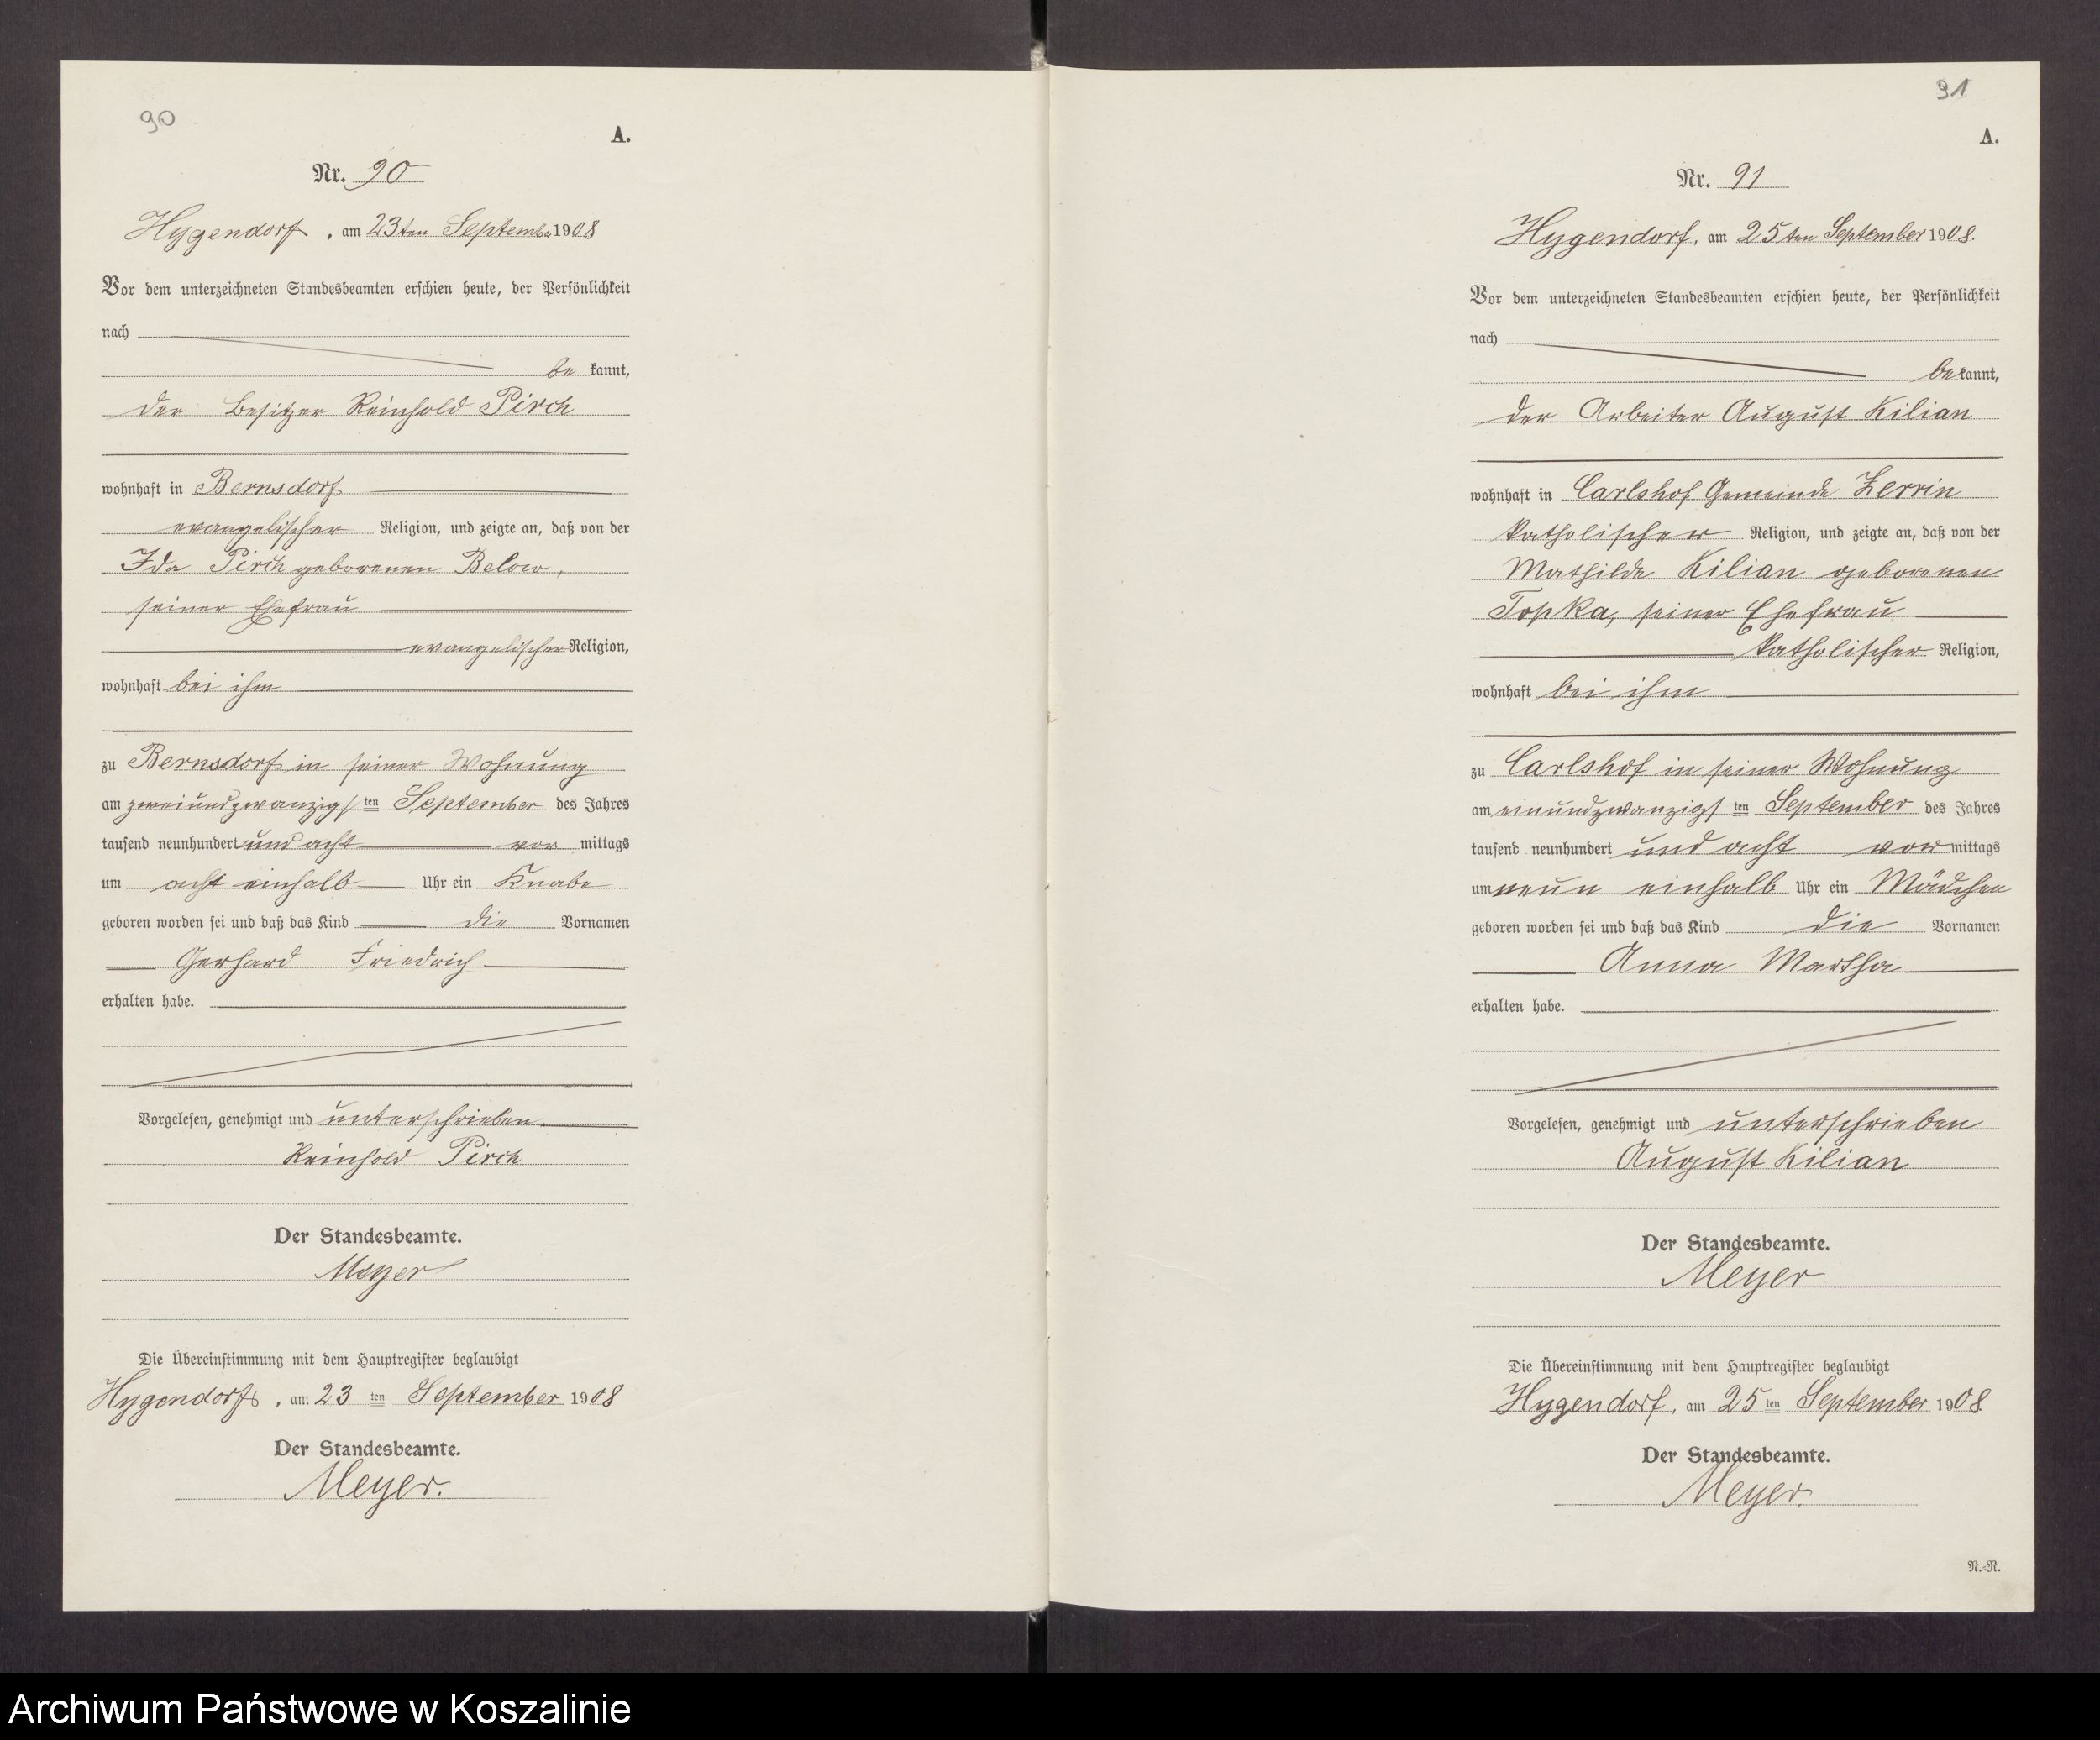 90
A.
Nr. 90
Hygendorf, am 23ten September 1908
Vor dem unterzeichneten Standesbeamten erschien heute, der Persönlichkeit
nach
be kannt,
der Besitzer Reinhold Pirch
wohnhaft in Bernsdorf
evangelischer Religion, und zeigte an, daß von der
Ida Pirch geborenen Below,
seiner Ehefrau
evangelischer Religion,
wohnhaft bei ihm
zu Bernsdorf in seiner Wohnung
am zweiundzwanzigsten September des Jahres
tausend neunhundert und acht vor mittags
um acht einhalb Uhr ein Knabe
geboren worden sei und daß das Kind die Vornamen
Gerhard Friedrich
erhalten habe.
Vorgelesen, genehmigt und unterschrieben
Reinhold Pirch
Der Standesbeamte.
Meyer
Die Übereinstimmung mit dem Hauptregister beglaubigt
Hygendorf, am 23 ten September 1908
Der Standesbeamte.
Meyer.
91
A.
Nr. 91
Hygendorf, am 25ten September 1908.
Vor dem unterzeichneten Standesbeamten erschien heute, der Persönlichkeit
nach
bekannt,
der Arbeiter August Kilian
wohnhaft in Carlshof Gemeinde Zerrin
katholischer Religion, und zeigte an, daß von der
Mathilde Kilian geborenen
Topka, seiner Ehefrau
katholischer Religion,
wohnhaft bei ihm
zu Carlshof in seiner Wohnung
am einundzwanzigsten September des Jahres
tausend neunhundert und acht vormittags
um neun einhalb Uhr ein Mädchen
geboren worden sei und daß das Kind die Vornamen
Anna Martha
erhalten habe.
Vorgelesen, genehmigt und unterschrieben
August Kilian
Der Standesbeamte.
Meyer
Die Übereinstimmung mit dem Hauptregister beglaubigt
Hygendorf, am 25 ten September 1908.
Der Standesbeamte.
Meyer.
N.=N.
Archiwum Państwowe w Koszalinie